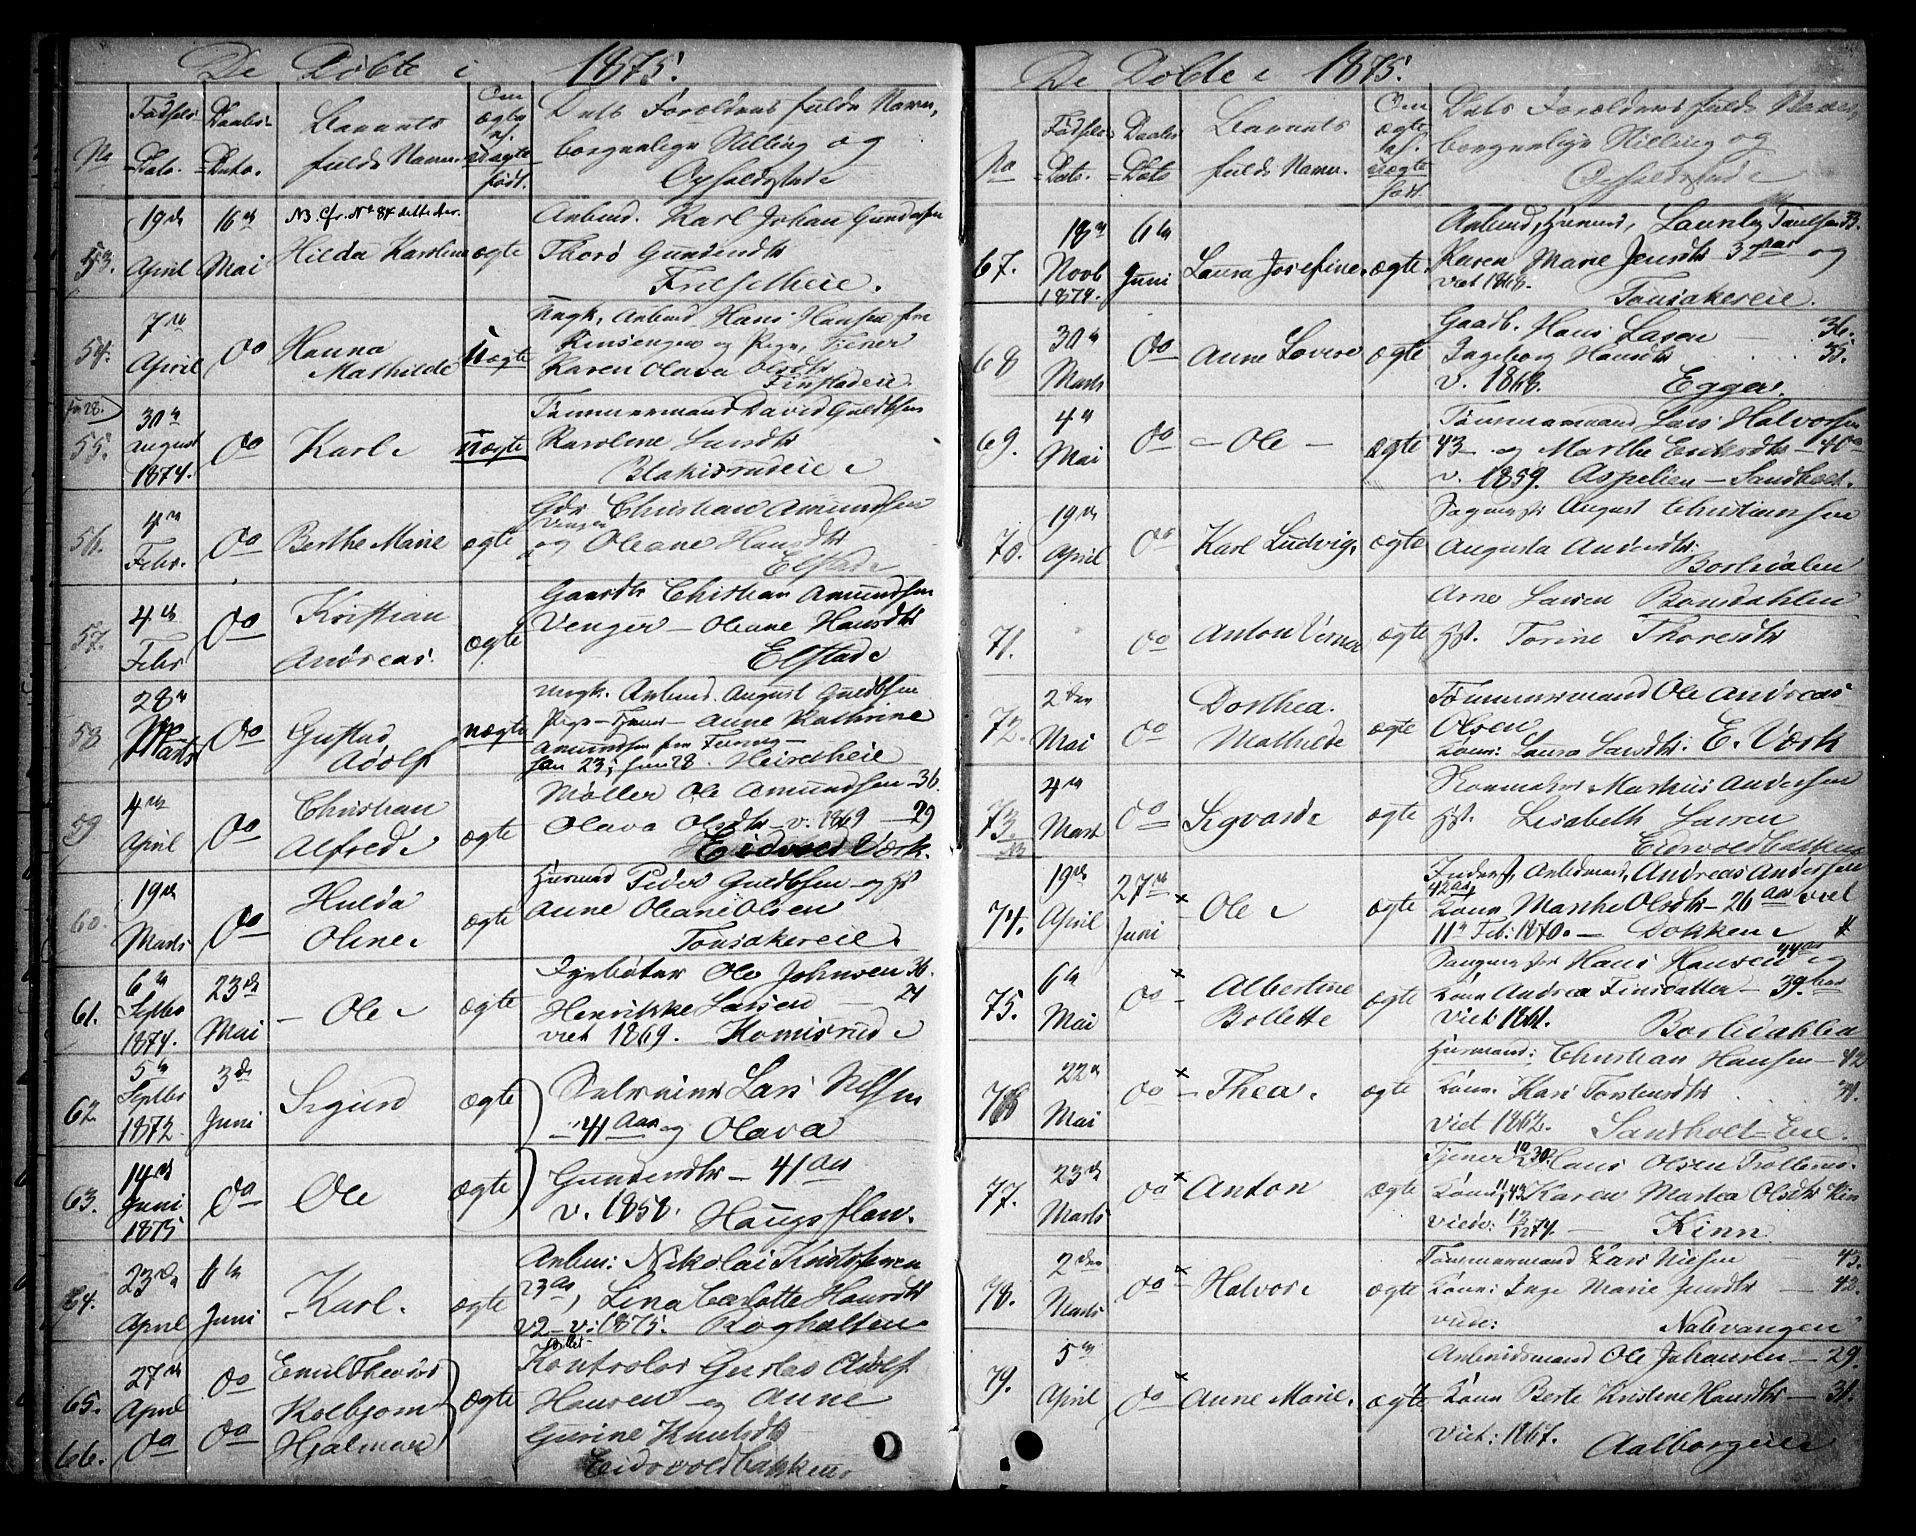 De Døbte i 1875.
No
Fødsels Dato.
Daabs-Dato.
Barnets fulde Navn.
Om ægte el. uægte født.
Dets Forældres fulde Navn, borgerlige Stilling og Opholdssted
NB. Cfr. No 84 dette Aar.
53.
19de April
16de Mai
Hilda Karoline
ægte
Arbeid. Karl Johan Gundersen
Thora Gundersdtr
54.
7de April
Do
Hanna Mathilde
uægte
Ungk. Arbeid. Hans Hansen fra
og Pige, Tjener
Karen Olava Olsdtr
Finstadeie.
55.
30te August 1874.
Do
Karl
uægte
Tømmermand David Guldbsen
Karoline Larsdtr
56.
4de Febr.
Do
Berthe Marie
ægte
Gdr Christian Amundsen
Venger
og Oleane Hansdtr
Elstad
57.
4de Febr
Do
Kristian Andreas.
ægte
Gaardbr Christian Amundsen
Venger – Oleane Hansdtr
Elstad
58
28de Marts
Do
Gustav Adolf
uægte
Ungk. Arbeid. August Guldbsen
Pige – Tjener – Anne Kathrine
Amundsen fra
59
4de April
Do
Christian Alfred
ægte
Møller Ole Amundsen – 36.
Olava Olsdtr – v. 1869 – 29
Eidsvold Værk.
60.
19de Marts
Do
Hulda Oline
ægte
Husmand Peder Guldbsen – og Hst
Anne Oleane Olsen
Tonsakereie.
61.
6te Septbr 1874.
23de Mai
– Ole
ægte
Ole Johnsen 36.
Henrikke Larsen – 24
viet 1869. Komisrud
62
5te Septbr 1872.
3de Juni
Sigurd
ægte
Lars Nilsen
– 41 Aar og Olava
63.
14de Juni 1875
Do
Ole
ægte
Gundersdtr – 41 Aar
v. 1858. Haugsflaen.
64.
23de April
6te Juni
Karl.
ægte
Arbeid: Nikolai Kristofersen
23 Aar, Lina Charlotte Hansdtr
22 – v: 1875. Rogholten
65.
27de April
Do
Emil Theodor Kolbjørn
ægte
Kontrolør Gustav Adolf
Hansen og Anne
66.
Do
Do
Hjalmar
Gurine Knutsdtr
Eidsvoldbakken
De Døbte i 1875.
No
Fødsels-Dato.
Daabs-Dato
Barnets fulde Navn.
Om ægte el. uægte født.
Dets Forældres fulde Navne, borgerlige Stilling og Opholdssted
67.
18de Novb 1874.
6te Juni
Laura Josefine.
ægte
Arbeid, Husmd, Laurits Paulsen 33.
Karen Marie Jensdtr 32 Aar og
viet 1868.
Tonsakereie.
68
30te Marts
Do
Anne Lovise
ægte
Gaadb. Hans Lasen – 36.
Ingeborg Hansdtr . . . 35.
v. 1868. Egge.
69.
4de Mai
Do
– Ole –
ægte
Tømmermand Lars Halvorsen
43 – og Marthe Eriksdtr – 40 Aar
v. 1859. Aspelien – Sandholt.
70.
19de April
Do
Karl Ludvig,
ægte
August Christiansen
Augusta Andersdtr.
Borlidalen
71.
Do
Anton Verner
ægte
Arne Larsen Bonsdahlen
Hst. Torine Thoresdtr
72.
2den Mai
Do
Dorthea Mathilde
ægte
Tømmermand Ole Andreas
Olsen
Kone: Laura Larsdtr. E. Værk
73.
NB
4de Marts
Do
Sigvard
ægte
Skomaker Markus Andersen
Hst. Lisabeth Larsen
Eidsvoldbakken
74.
19de April
27de Juni
× Ole
ægte
Inderst, Arbidmand, Andreas Andersen
42 Aar,
Kone Marthe Olsdtr – 26 Aar viet
11te Feb: 1870. – Dokken
75.
6te Mai
Do
× – Albertine Bollette
ægte
Hans Hansen 44 Aar og
Kone Andrea Finsdatter – 39. Aar
Viet 1861. Borlidahlen
76
22de Mai
Do
× – Thea.
ægte
Husmand: Christian Hansen – 42
Kone. Kari Torstensdtr
Viet 1862. Sandholt-Eie.
77.
23de Marts
Do
× Anton
ægte
Tjener Hans Olsen
Kone, Karen Marthea Olsdtr
viede: 1874. – Kinn
78.
2den Marts
Do
× – Halvor
ægte
Tømmermand Lars Nilsen – 43.
Kone: Inge Marie Jensdtr – 42.
viede:
Nabvangen
79.
5te April
Do
× Anne Marie.
ægte
Arbeidsmand Ole Johansen – 29.
Kone Berte Kristine Hansdtr – 31.
Viet: 1867. Aalborgeie